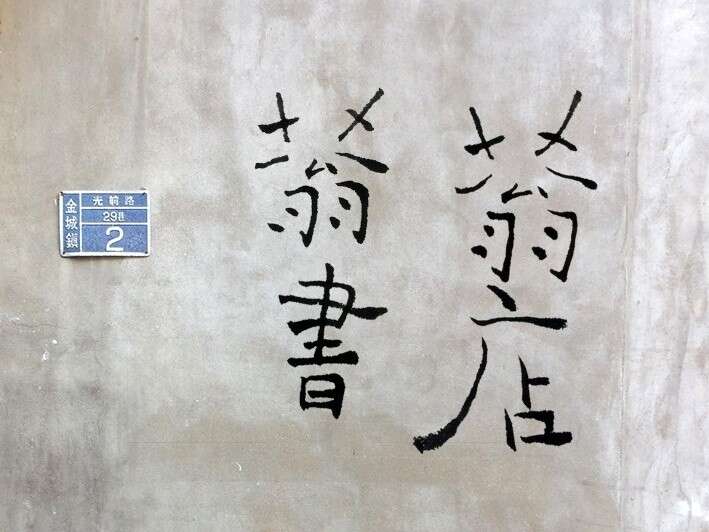 金城鎮
光前路
29巷
2
蓊蓊
書店